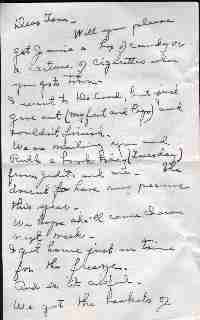 Dear Tom -
Will you please
get Jamie a box of candy or
a carton of cigarettes when
you go to town -
I went to the Cloud but just
gave out (my feet and legs) and
couldn't finish.
We are mailing you and
Ruth a book today (Tuesday)
from Judith and me. She
doesn't to have any
this year.
We hope she'll come down
next week.
I got home just in time
for the freeze.
And is it awful.
We got the baskets of